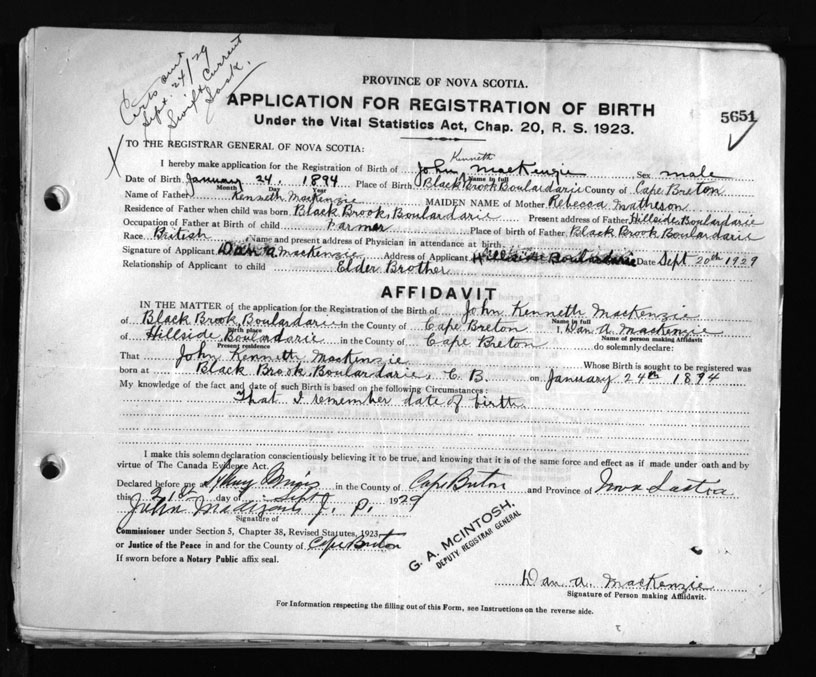 Certs out
Sept. 24/29
Swift Current
Sask.
PROVINCE OF NOVA SCOTIA.
APPLICATION FOR REGISTRATION OF BIRTH
Under the Vital Statistics Act, Chap. 20, R. S. 1923.
5651
TO THE REGISTRAR GENERAL OF NOVA SCOTIA:
Kenneth
I hereby make application for the Registration of Birth of John MacKenzie Sex male
Name in full
Date of Birth January 24, 1894 Place of Birth Black Brook Boulardarie County of Cape Breton
Month Day Year
Name of Father Kenneth MacKenzie MAIDEN NAME of Mother Rebecca Matheson
Residence of Father when child was born Black Brook, Boulardarie Present address of Father Hillside, Boulardarie
Occupation of Father at Birth of child Farmer Place of birth of Father Black Brook, Boulardarie
Race British Name and present address of Physician in attendance at birth
Signature of Applicant Dan A MacKenzie Address of Applicant Hillside Boulardarie Date Sept 20th 1929
Relationship of Applicant to child Elder Brother
AFFIDAVIT
IN THE MATTER of the application for the Registration of the Birth of John Kenneth MacKenzie
Name in full
of Black Brook, Boulardarie in the County of Cape Breton I, Dan A. MacKenzie
Birth place Name of person making Affidavit
of Hillside, Boulardarie in the County of Cape Breton do solemnly declare:
Present residence
That John Kenneth MacKenzie Whose Birth is sought to be registered was
born at Black Brook, Boulardarie, C. B. on January 24th 1894
My knowledge of the fact and date of such Birth is based on the following Circumstances:
That I remember date of birth
I make this solemn declaration conscientiously believing it to be true, and knowing that it is of the same force and effect as if made under oath and by
virtue of The Canada Evidence Act.
Declared before me at Sydney Mines in the County of Cape Breton and Province of Nova Scotia
this 21st day of Sept 1929
John J. P.
Signature of
Commissioner under Section 5, Chapter 38, Revised Statutes, 1923
or Justice of the Peace in and for the County of Cape Breton
If sworn before a Notary Public affix seal.
G. A. McINTOSH,
DEPUTY REGISTRAR GENERAL
Dan A. MacKenzie
Signature of Person making Affidavit.
For Information respecting the filling out of this Form, see Instructions on the reverse side.